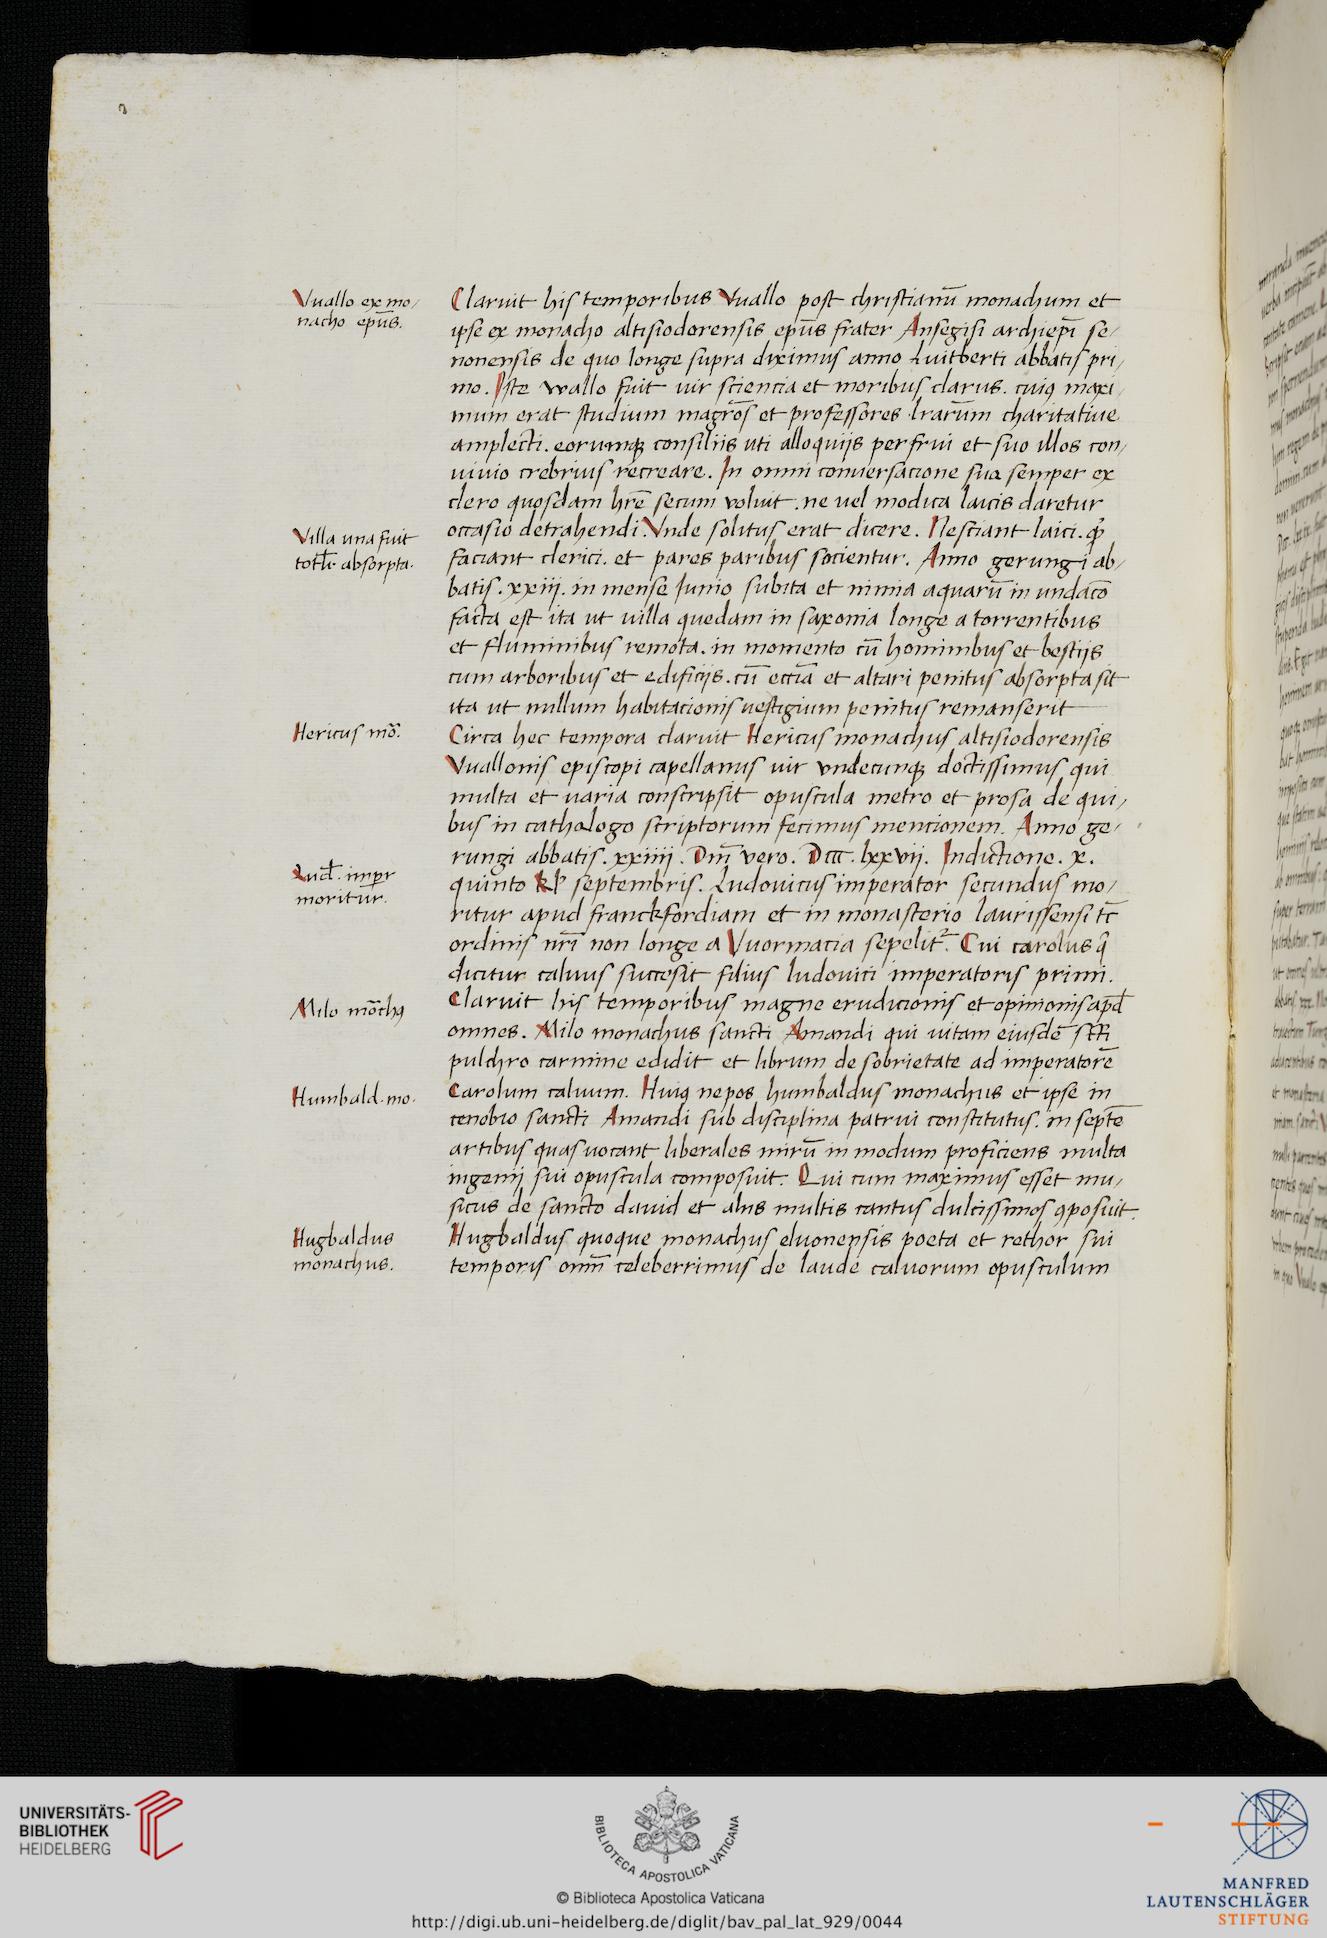 Vuallo ex mo/
nacho ep̄us.
Claruit his temporibus Vuallo post christianū monachum et
ipse ex monacho altisiodorensis ep̄us frater Ansegisi archiep̄i se/
nonensis de quo longe supra diximus anno Luitberti abbatis pri/
mo. Iste wallo fuit uir sciencia et moribus clarus. cuiꝯ maxi/
mum erat studium magr̄os et professores lr̄arum charitatiue
amplecti. eorumqꝫ consiliis uti alloquijs perfrui et suo illos con/
uiuio crebrius recreare. In omni conuersacione sua semper ex
clero quosdam hr̄e secum voluit. ne uel modica laicis daretur
Villa una fuit
totl̄r absorpta.
occasio detrahendi. Vnde solitus erat dicere. Nesciant laici. qꝫ
faciant clerici. et pares paribus socientur. Anno gerungi ab/
batis. xxiij. in mense Junio subita et nimia aquarū in undac̄o
facta est ita ut uilla quedam in saxonia longe a torrentibus
et fluminibus remota. in momento cū hominibus et bestijs
cum arboribus et edificijs. cū eccīa et altari penitus absorpta sit
ita ut nullum habitacionis uestigium penitus remanserit
Hericus mō.
Circa hec tempora claruit Hericus monachus altisiodorensis
Vuallonis episcopi capellanus uir vndecunqꝫ doctissimus qui
multa et uaria conscripsit opuscula metro et prosa de qui/
bus in cathalogo scriptorum fecimus mencionem. Anno ge/
rungi abbatis. xxiiii. Dn̄i vero. Dccc. lxxvij. Indictione. x.
Lud̄. imꝑr
moritur.
quinto kl̄ septembris. Ludouicus imperator secundus mo/
ritur apud franckfordiam et in monasterio laurissensi tc̄
ordinis nr̄i non longe a Vuormacia sepelit᷑. Cui carolus q̄
dicitur caluus succesit filius ludouici imperatoris primi.
Milo mōchꝯ
Claruit his temporibus magne erudicionis et opinionis apd̄
omnes. Milo monachus sancti Amandi qui uitam eiusdē sc̄ti
pulchro carmine edidit et librum de sobrietate ad imperatorē
Humbald. mo.
Carolum caluum. Huiꝯ nepos humbaldus monachus et ipse in
cenobio sancti Amandi sub disciplina patrui constitutus. in septē
artibus quas uocant liberales mirū in modum proficiens multa
ingenij sui opuscula composuit. Qui cum maximus esset mu/
sicus de sancto dauid et aliis multis cantus dulcissimos ꝯposuit.
Hugbaldus
monachus.
Hugbaldus quoque monachus eluonensis poeta et rethor sui
temporis omn̄i celeberrimus de laude caluorum opusculum
UNIVERSITÄTS-
BIBLIOTHEK
HEIDELBERG
BIBLIOTECA APOSTOLICA VATICANA
© Biblioteca Apostolica Vaticana
http://digi.ub.uni-heidelberg.de/diglit/bav_pal_lat_929/0044
MANFRED
LAUTENSCHLÄGER
STIFTUNG